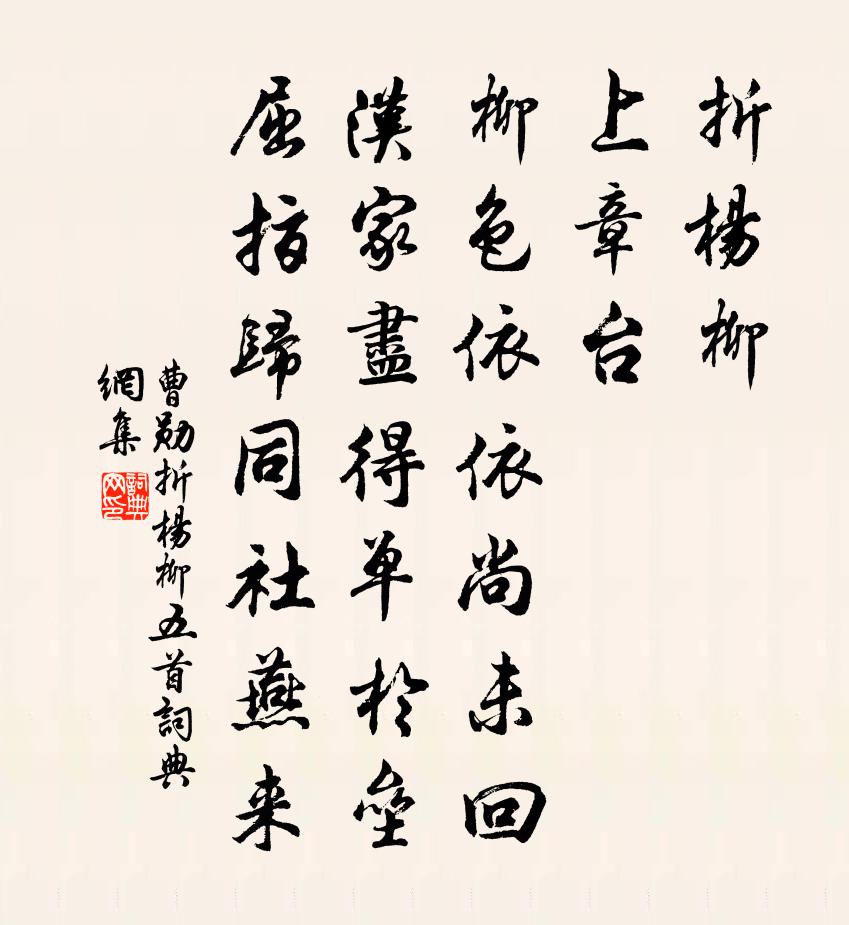 折楊柳
上章台
柳色依依尚未回
漢家盡得单於垒
屈指歸同社燕来
曹勋折楊柳五首詞典
網集
詞典
网印